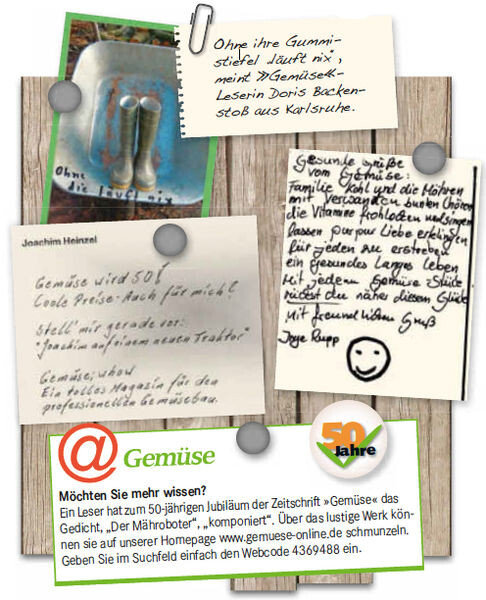 Ohne ihre Gummi-
stiefel läuft nix",
meint »Gemüse«-
Leserin Doris Backen-
stoß aus Karlsruhe.
Ohne
die läuft nix
Gesunde Grüße
vom Gemüse:
Familie Kohl und die Möhren
mit Verwandten bunten Chören
die Vitamine frohlocken und singen
lassen pur pur Liebe erklingen
für jeden zu erstreben
ein gesundes langes Leben
Mit jedem Gemüse-Stück
rückst du näher diesem Glück
Mit freundlichem Gruß
Rupp
Joachim Heinzel
Gemüse wird 50!
Coole Preise - Auch für mich?
Stell' mir gerade vor:
"Joachim auf einem neuen Traktor"
Gemüse; whow
Ein tolles Magazin für den
professionellen Gemüsebau.
@ Gemüse
50
Jahre
Möchten Sie mehr wissen?
Ein Leser hat zum 50-jährigen Jubiläum der Zeitschrift »Gemüse« das
Gedicht, „Der Mähroboter“, „komponiert“. Über das lustige Werk kön-
nen sie auf unserer Homepage www.gemuese-online.de schmunzeln.
Geben Sie im Suchfeld einfach den Webcode 4369488 ein.